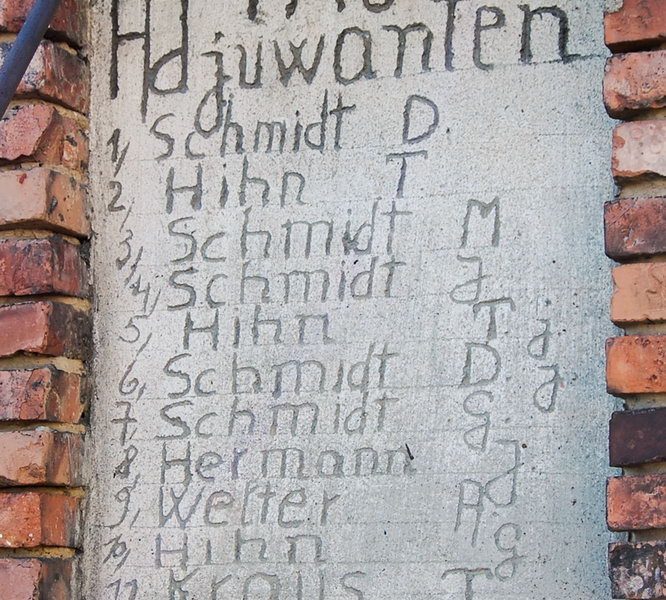 Adjuwanten
1, Schmidt D
2, Hihn T
3, Schmidt M
4, Schmidt J
5, Hihn T j
6, Schmidt D. J
7, Schmidt G.
8, Hermann J
9, Welter A
10, Hihn G
11 Kraus T